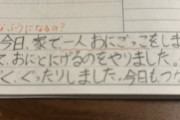 ぷうになるの?
今日、家で一人おにごっこをしま
て、おにとにげるのをやりました。
く、ぐったりしました。今日もつか